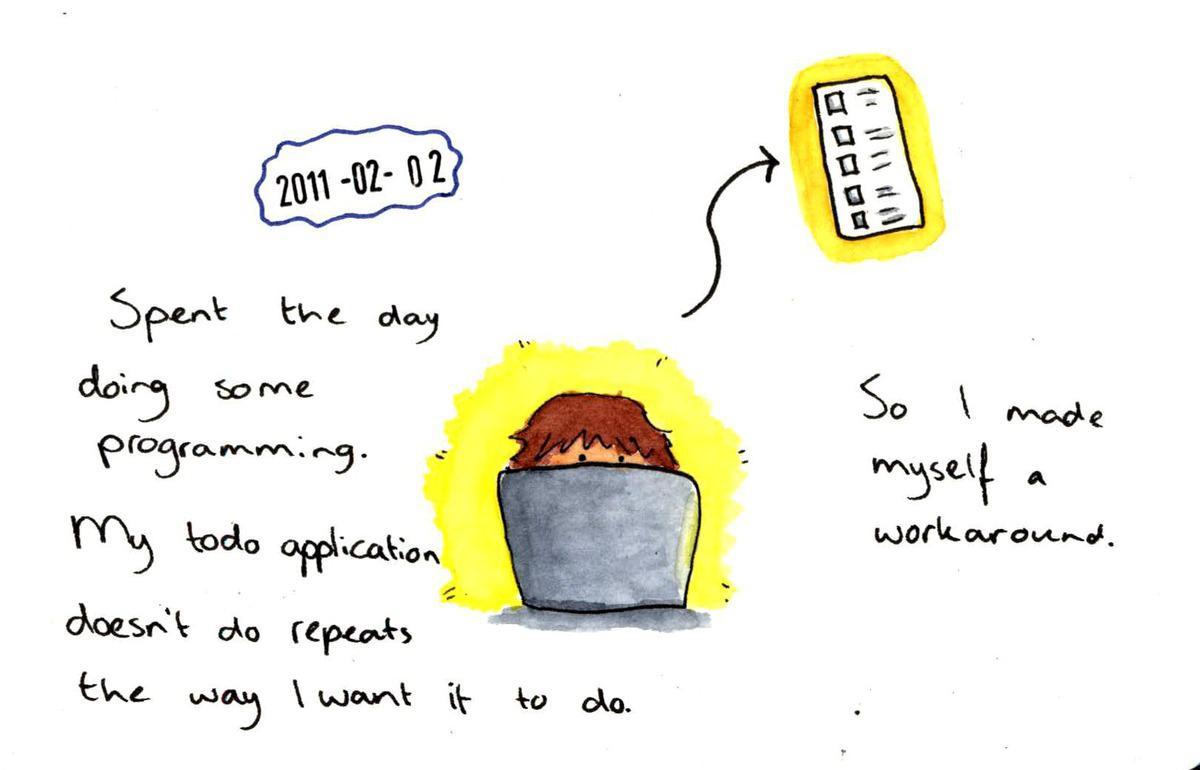 2011-02-02
Spent the day
doing some
programming.
My todo application
doesn't do repeats
the way I want it to do.
So I made
myself a
workaround.